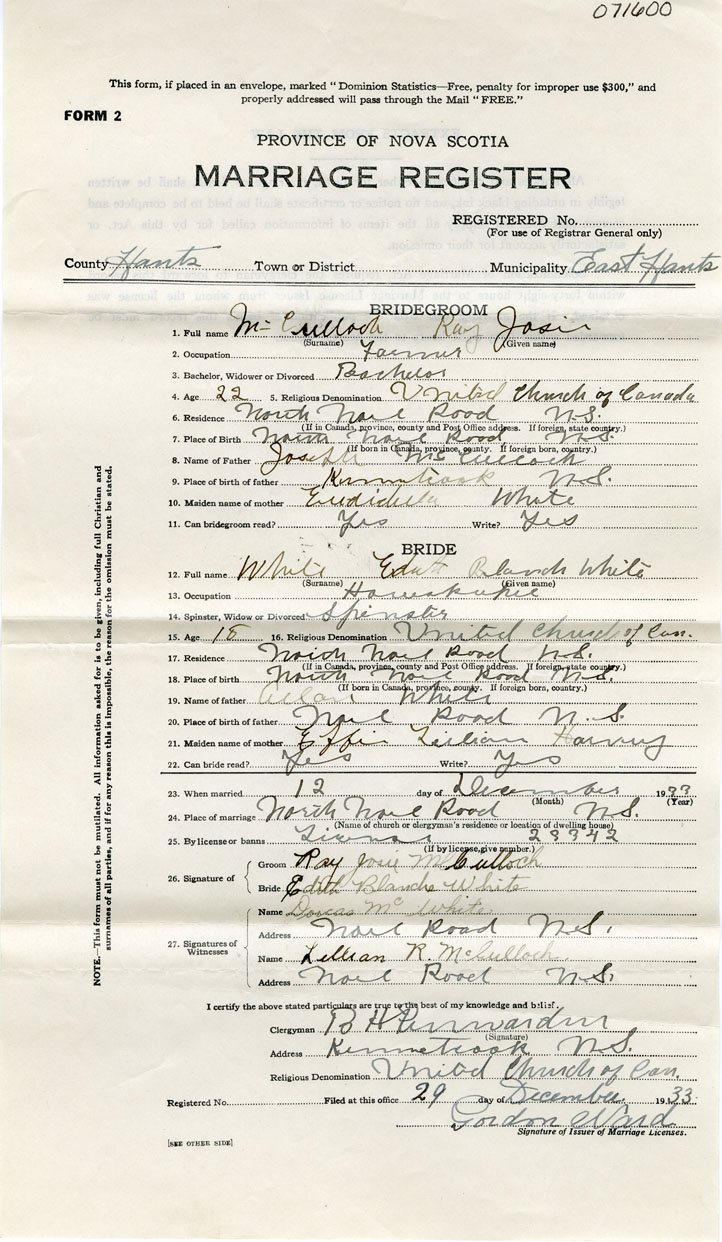 071600
This form, if placed in an envelope, marked "Dominion Statistics—Free, penalty for improper use $300," and
properly addressed will pass through the Mail "FREE."
FORM 2
PROVINCE OF NOVA SCOTIA
MARRIAGE REGISTER
REGISTERED No.
(For use of Registrar General only)
County Hants Town or District Municipality East Hants
BRIDEGROOM
1. Full name McCulloch Ray Josie
(Surname) (Given name)
2. Occupation Farmer
3. Bachelor, Widower or Divorced Bachelor
4. Age 22 5. Religious Denomination United Church of Canada
6. Residence North Noel Road N.S.
(If in Canada, province, county and Post Office address. If foreign, state country.)
7. Place of Birth North Noel Road N.S.
(If born in Canada, province, county. If foreign born, country.)
8. Name of Father Joseph McCulloch
9. Place of birth of father Kennetcook N.S.
10. Maiden name of mother White
11. Can bridegroom read? Yes Write? Yes
BRIDE
12. Full name White Edith Blanch White
(Surname) (Given name)
13. Occupation
14. Spinster, Widow or Divorced Spinster
15. Age 16. Religious Denomination United Church of Can.
17. Residence North Noel Road N.S.
(If in Canada, province, county and Post Office address. If foreign, state country.)
18. Place of birth North Noel Road N.S.
(If born in Canada, province, county. If foreign born, country.)
19. Name of father Allan White
20. Place of birth of father Noel Road N.S.
21. Maiden name of mother Effie Lillian Harvey
22. Can bride read? Yes Write? Yes
23. When married 12 day of December 1933
(Month) (Year)
24. Place of marriage North Noel Road N.S.
(Name of church or clergyman's residence or location of dwelling house)
25. By license or banns License 23342
(If by license, give number.)
26. Signature of
Groom Ray Josie McCulloch
Bride Edith Blanche White
27. Signatures of Witnesses
Name Mc White
Address Noel Road N.S.
Name Lillian R. McCulloch
Address Noel Road N.S.
I certify the above stated particulars are true to the best of my knowledge and belief.
Clergyman B H
(Signature)
Address Kennetcook N.S.
Religious Denomination United Church of Can.
Registered No. Filed at this office 29 day of December 1933
Gordon Ward
Signature of Issuer of Marriage Licenses.
[SEE OTHER SIDE]
NOTE.—This form must not be mutilated. All information asked for is to be given, including full Christian and
surnames of all parties, and if for any reason this is impossible, the reason for the omission must be stated.